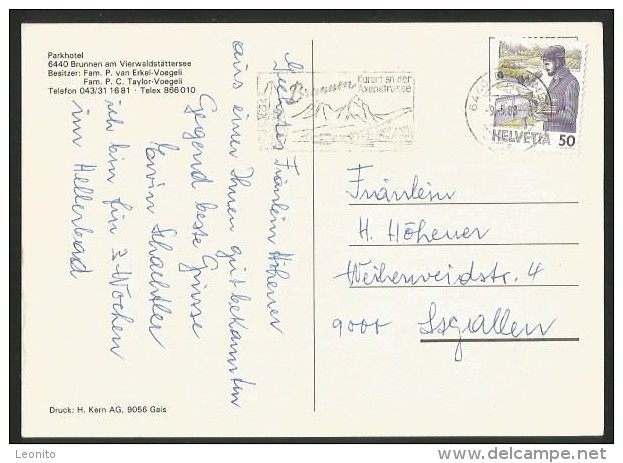 Parkhotel
6440 Brunnen am Vierwaldstättersee
Besitzer: Fam. P. van Erkel-Voegeli
Fam. P. C. Taylor-Voegeli
Telefon 043/31 16 81 · Telex 866 010
Brunnen
Kurort an der
Axenstrasse
HELVETIA 50
Fräulein Höhener
aus einer Ihnen gut bekannten
Gegend beste Grüsse
Schachtler
ich bin für 3 Wochen
im Hellerbad
Fräulein
H. Höhener
Weiherweidstr. 4
9000 St. Gallen
Druck: H. Kern AG, 9056 Gais
Delcampe.net